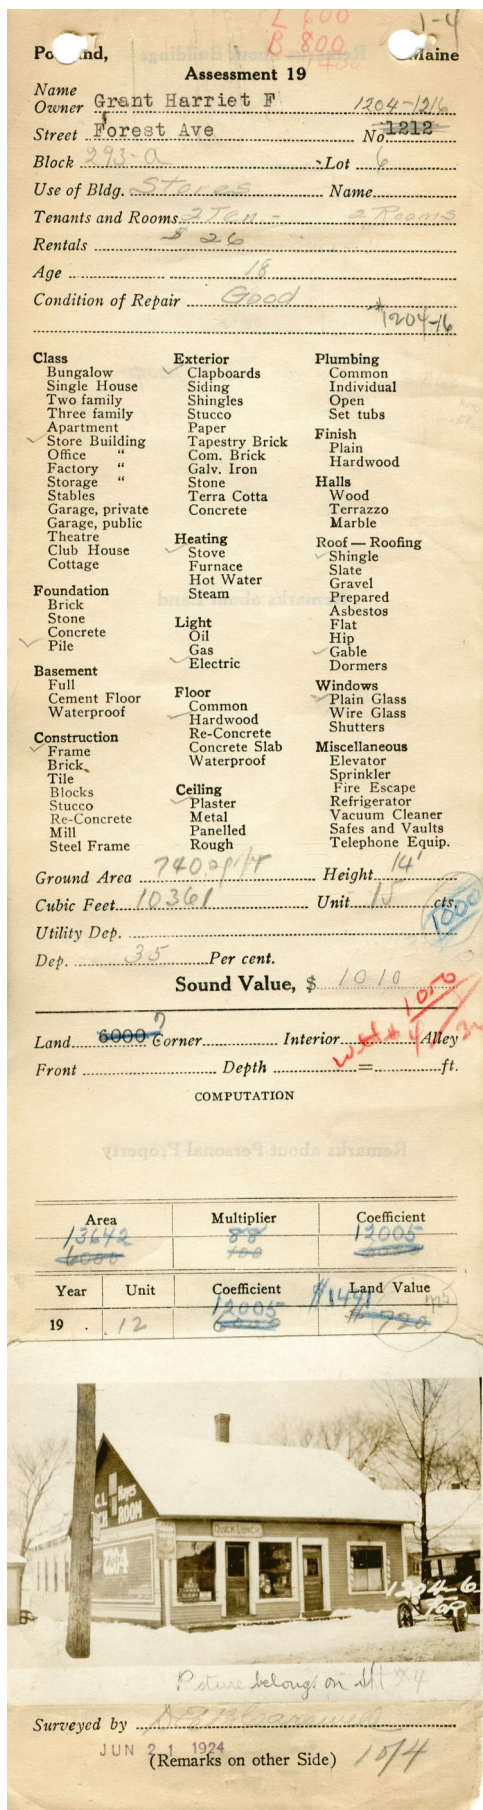 L 600
B 800
1400
1-4
Portland, Maine
Assessment 19
Name
Owner Grant Harriet F 1204-1216
Street Forest Ave No 1212
Block 293-a Lot 6
Use of Bldg. Stores Name
Tenants and Rooms 2 Ten - 2 Rooms
Rentals $ 26
Age 18
Condition of Repair Good
#1204-16
Class
Bungalow
Single House
Two family
Three family
Apartment
Store Building
Office "
Factory "
Storage "
Stables
Garage, private
Garage, public
Theatre
Club House
Cottage
Foundation
Brick
Stone
Concrete
Pile
Basement
Full
Cement Floor
Waterproof
Construction
Frame
Brick
Tile
Blocks
Stucco
Re-Concrete
Mill
Steel Frame
Exterior
Clapboards
Siding
Shingles
Stucco
Paper
Tapestry Brick
Com. Brick
Galv. Iron
Stone
Terra Cotta
Concrete
Heating
Stove
Furnace
Hot Water
Steam
Light
Oil
Gas
Electric
Floor
Common
Hardwood
Re-Concrete
Concrete Slab
Waterproof
Ceiling
Plaster
Metal
Panelled
Rough
Plumbing
Common
Individual
Open
Set tubs
Finish
Plain
Hardwood
Halls
Wood
Terrazzo
Marble
Roof — Roofing
Shingle
Slate
Gravel
Prepared
Asbestos
Flat
Hip
Gable
Dormers
Windows
Plain Glass
Wire Glass
Shutters
Miscellaneous
Elevator
Sprinkler
Fire Escape
Refrigerator
Vacuum Cleaner
Safes and Vaults
Telephone Equip.
Ground Area 740 sq. ft Height 14'
Cubic Feet 10361 Unit 15 cts.
1000
Utility Dep.
Dep. 35 Per cent.
Sound Value, $ 1010
1050
Land 6000 Corner Interior Alley
Front Depth = ft.
COMPUTATION
Area Multiplier Coefficient
13642 88 12005
6000 100 6000
Year Unit Coefficient Land Value
12005 $1441
19 .12 6000 $720 725
C.L. Hayes
ROOM
QUICK LUNCH
1204-6
For
Picture belongs on sht #4
Surveyed by
JUN 21 1924
(Remarks on other Side) 10/4